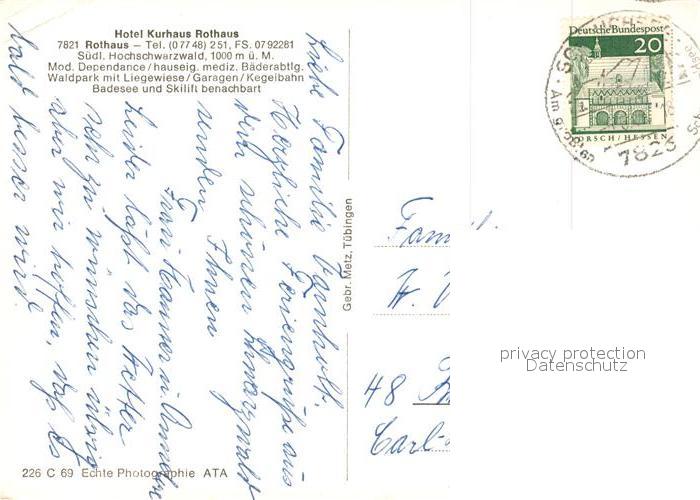 Hotel Kurhaus Rothaus
7821 Rothaus — Tel. (07748) 251, FS. 0792281
Südl. Hochschwarzwald, 1000 m ü. M.
Mod. Dependance / hauseig. mediz. Bäderabtlg.
Waldpark mit Liegewiese / Garagen / Kegelbahn
Badesee und Skilift benachbart
Liebe Familie
Herzliche Feriengrüße aus
dem schönen Schwarzwald
senden Ihnen
Frau Hammer u.
Leider läßt das Wetter
sehr zu wünschen übrig
aber wir hoffen, daß es
bald besser wird.
226 C 69 Echte Photographie ATA
Gebr. Metz, Tübingen
Deutsche Bundespost
20
LORSCH / HESSEN
7823
Fam
48
Carl-
privacy protection
Datenschutz